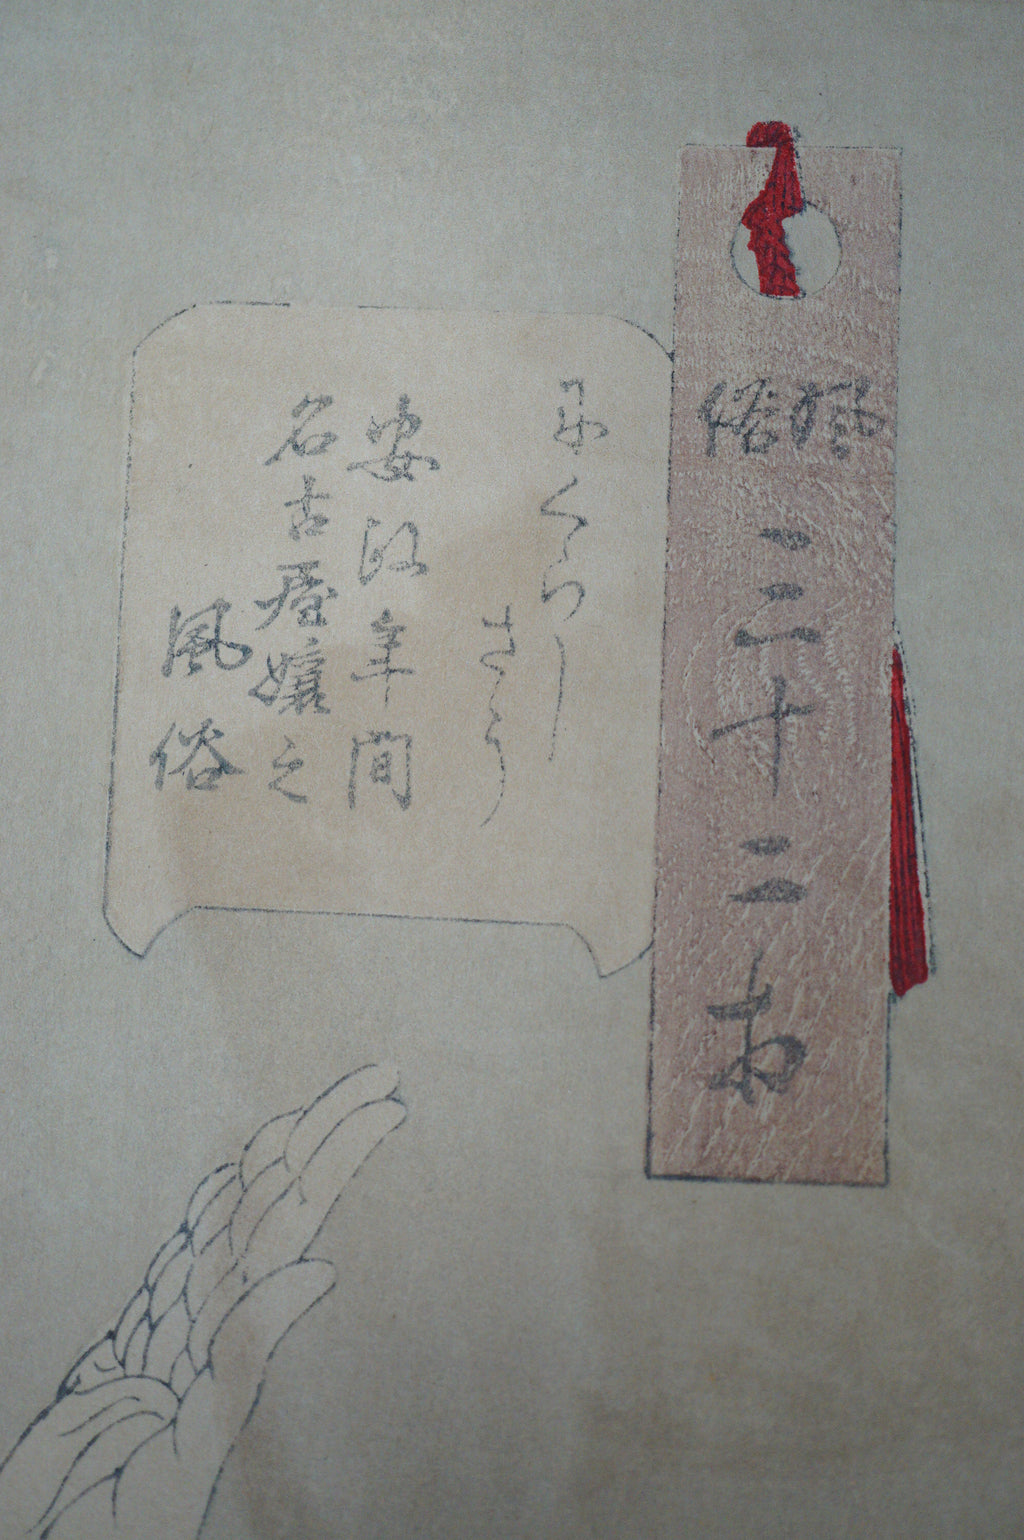 風俗三十二相
にくらし
さう
安政年間
名古屋孃之
風俗